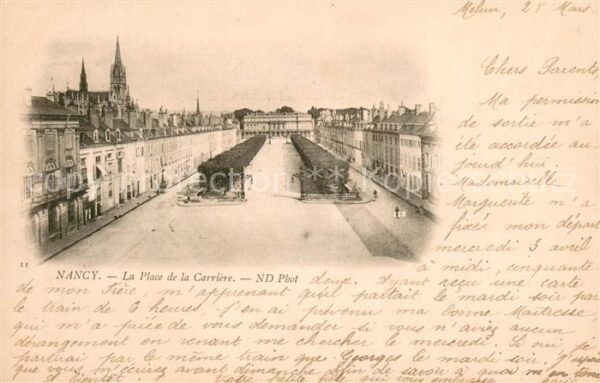 Melun, 28 Mars.
Chers Parents,
Ma permission
de sortie m'a
été accordée au-
jourd'hui
Mademoiselle
Marguerite m'a
fixée mon départ
mercredi 3 avril
à midi, cinquante
deux. Ayant reçu une carte
de mon frère, m'apprenant qu'il partait le mardi soir par
le train de 6 heures, j'en ai prévenu ma bonne Maîtresse,
qui m'a priée de vous demander si vous n'aviez aucun
dérangement en venant me chercher le mercredi. Si oui, je
partirai par le même train que Georges le mardi soir.
que vous m'écriviez avant dimanche afin de savoir à quoi
à bientôt. Votre petite qui vous embrasse
11
NANCY. — La Place de la Carrière. — ND Phot